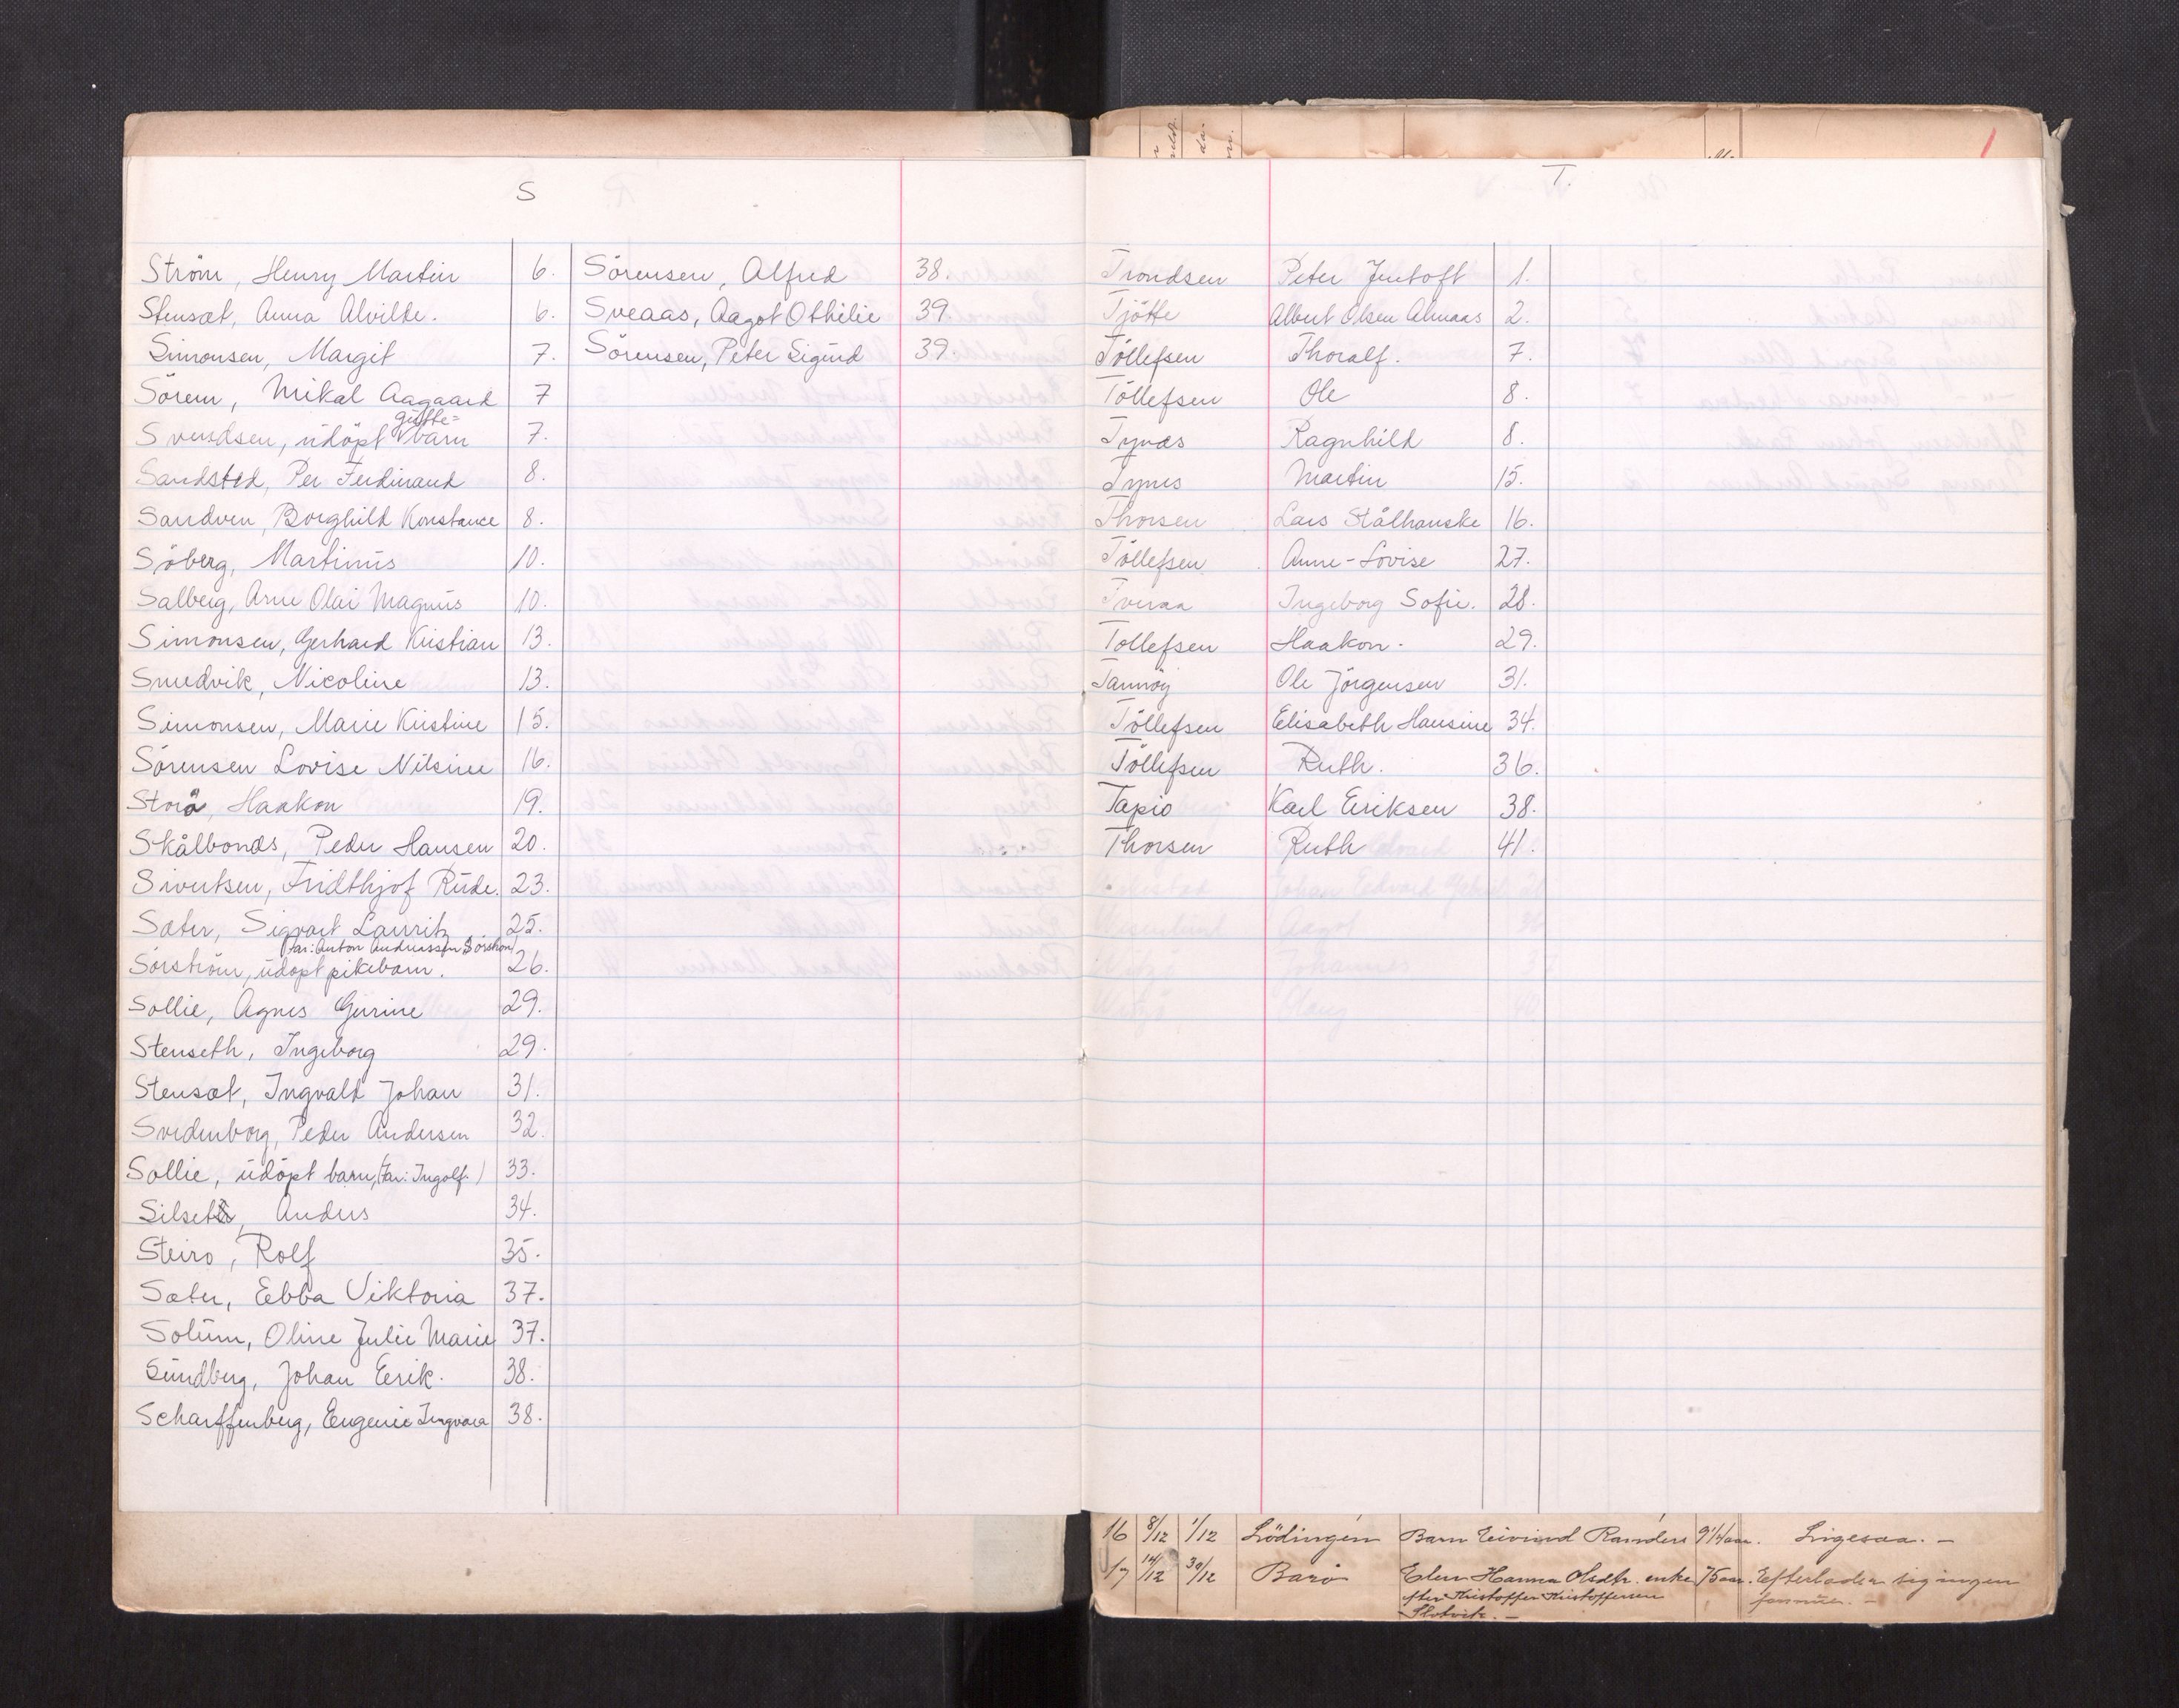 S
Ström, Henry Martin 6.
Stensæt, Anna Alvilde. 6.
Simonsen, Margit 7.
Sörem, Mikal Aagaard 7
gutte=
Svendsen, udöpt barn 7.
Sandsted, Per Ferdinand 8.
Sandven, Borghild Konstance 8.
Söberg, Martinus 10.
Salberg, Arne Olai Magnus 10.
Simonsen, Gerhard Kristian 13.
Smedvik, Nicoline 13.
Simonsen, Marie Kristine 15.
Sörensen Lovise Nilsine 16.
Storå, Haakon 19.
Skålbonds, Peder Hansen 20.
Sivertsen, Fridthjof Rude. 23.
Sæter, Sigvart Lauritz 25.
(Far: Anton Andreassen Sörström)
Sörström, udöpt pikebarn. 26.
Sollie, Agnes Gurine 29.
Stenseth, Ingeborg 29.
Stensæt, Ingvald Johan 31.
Svedenborg, Peder Andersen 32.
Sollie, udöpt barn, (Far: Ingolf.) 33.
Silseth, Anders 34.
Steiro, Rolf 35.
Sæter, Ebba Viktoria 37.
Solum, Oline Julie Marie 37.
Sundberg, Johan Erik. 38.
Scharffenberg, Eugenie Ingvara 38.
Sörensen, Alfred 38.
Sveaas, Aagot Othilie 39
Sörensen, Peter Sigurd 39.
T.
Trondsen Peter Jentoft 1.
Tjötte Albert Olsen Almaas 2.
Töllefsen Thoralf. 7.
Töllefsen Ole 8.
Tynæs Ragnhild 8.
Tynes Martin 15.
Thorsen Lars Stålhanske 16.
Töllefsen Anne-Lovise 27.
Tveraa Ingeborg Sofie. 28.
Tollefsen Haakon. 29.
Tannöy Ole Jörgensen 31.
Töllefsen Elisabeth Hansine 34.
Töllefsen Ruth. 36.
Tapio Karl Eriksen 38.
Thorsen Ruth 41.
16 8/12 1/12 Lödingen Barn Eivind Randers 9 1/4 aar. Ligesaa. -
17 14/12 30/12 Barö Elen Hanna Olsdtr. enke 75 aar. Efterlader sig ingen
efter Kristoffer Kristoffersen formue. -
Slotvik. -